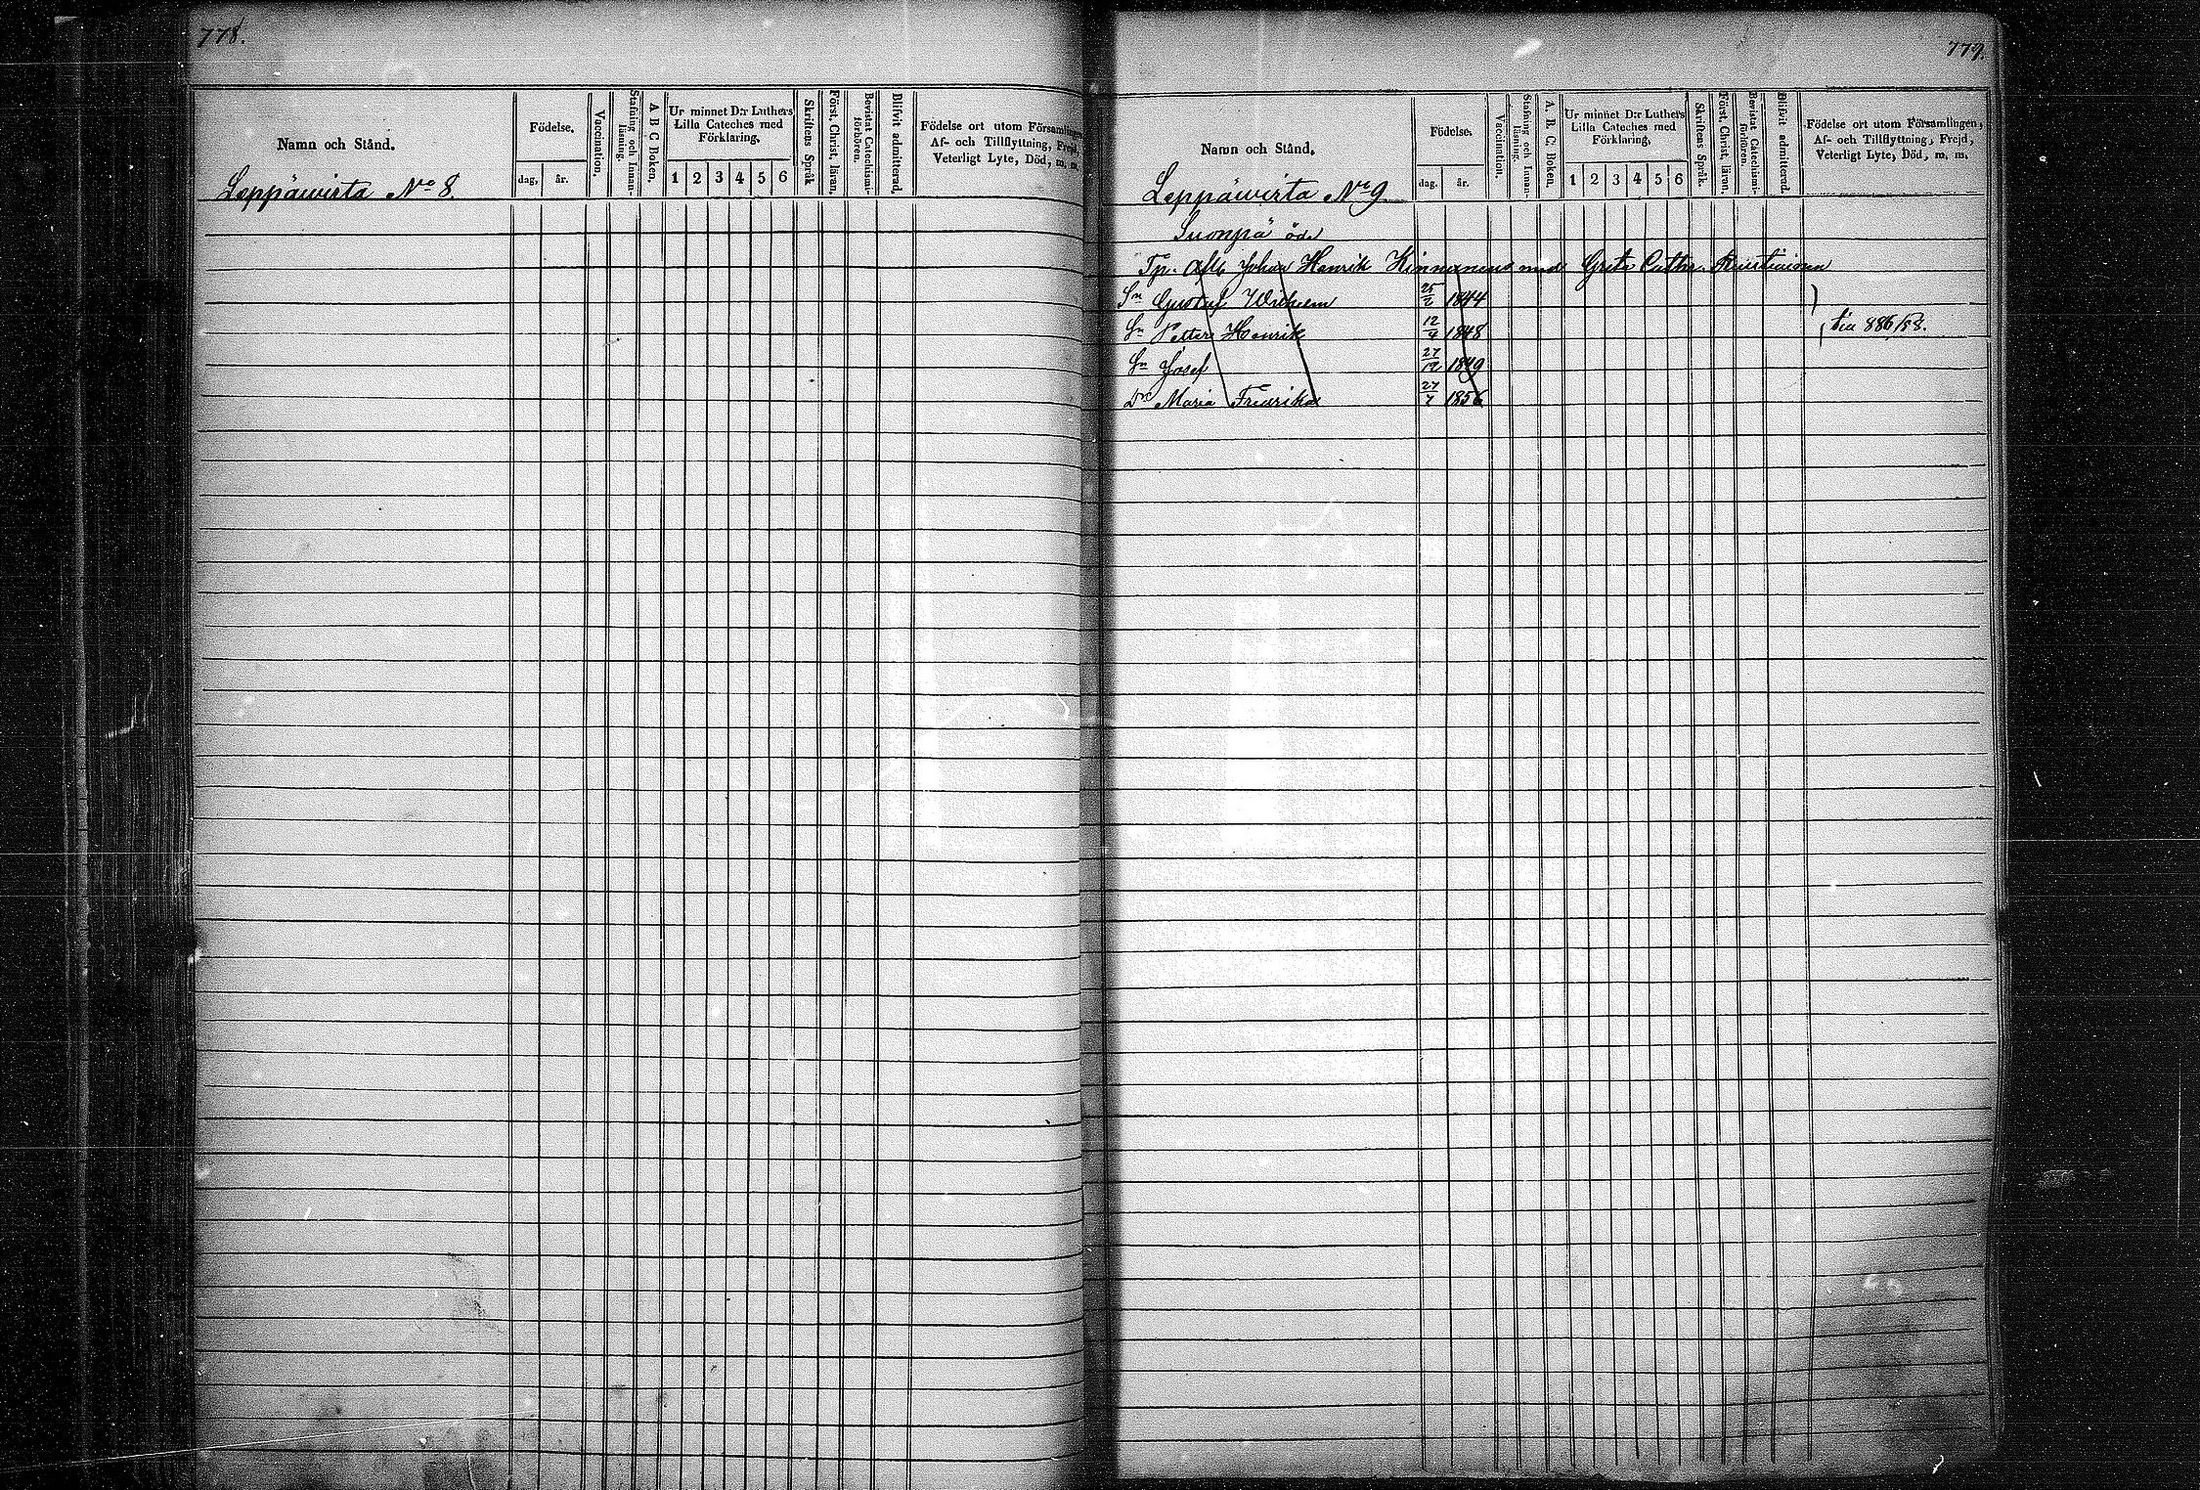 778.
Namn och Stånd.
Födelse.
dag, år.
Vaccination.
Stafning och Innanläsning.
A B C Boken.
Ur minnet D:r Luthers Lilla Cateches med Förklaring.
1 2 3 4 5 6
Skriftens Språk
Först. Christ. läran.
Bevistat Catechismiförhören.
Blifvit admitterad.
Födelse ort utom Församlingen,
Af- och Tillflyttning, Frejd,
Veterligt Lyte, Död, m. m.
Leppäwirta No 8.
779.
Namn och Stånd.
Födelse.
dag. år.
Vaccination.
Stafning och Innanläsning.
A. B. C. Boken.
Ur minnet D:r Luthers Lilla Cateches med Förklaring.
1 2 3 4 5 6
Skriftens Språk.
Först. Christ. läran.
Bevistat Catechismiförhören.
Blifvit admitterad.
Födelse ort utom Församlingen,
Af- och Tillflyttning, Frejd,
Veterligt Lyte, Död, m. m.
Leppäwirta No 9
Suonpä öde
Tp. Johan Henrik Kinnunens med Greta Cathr.
Sn Gustaf Wilhelm 25/2 1844
Sn Petter Henrik 12/4 1848 886/58.
Sn Josef 27/12 1849
Dr Maria Fredrika 27/7 1856